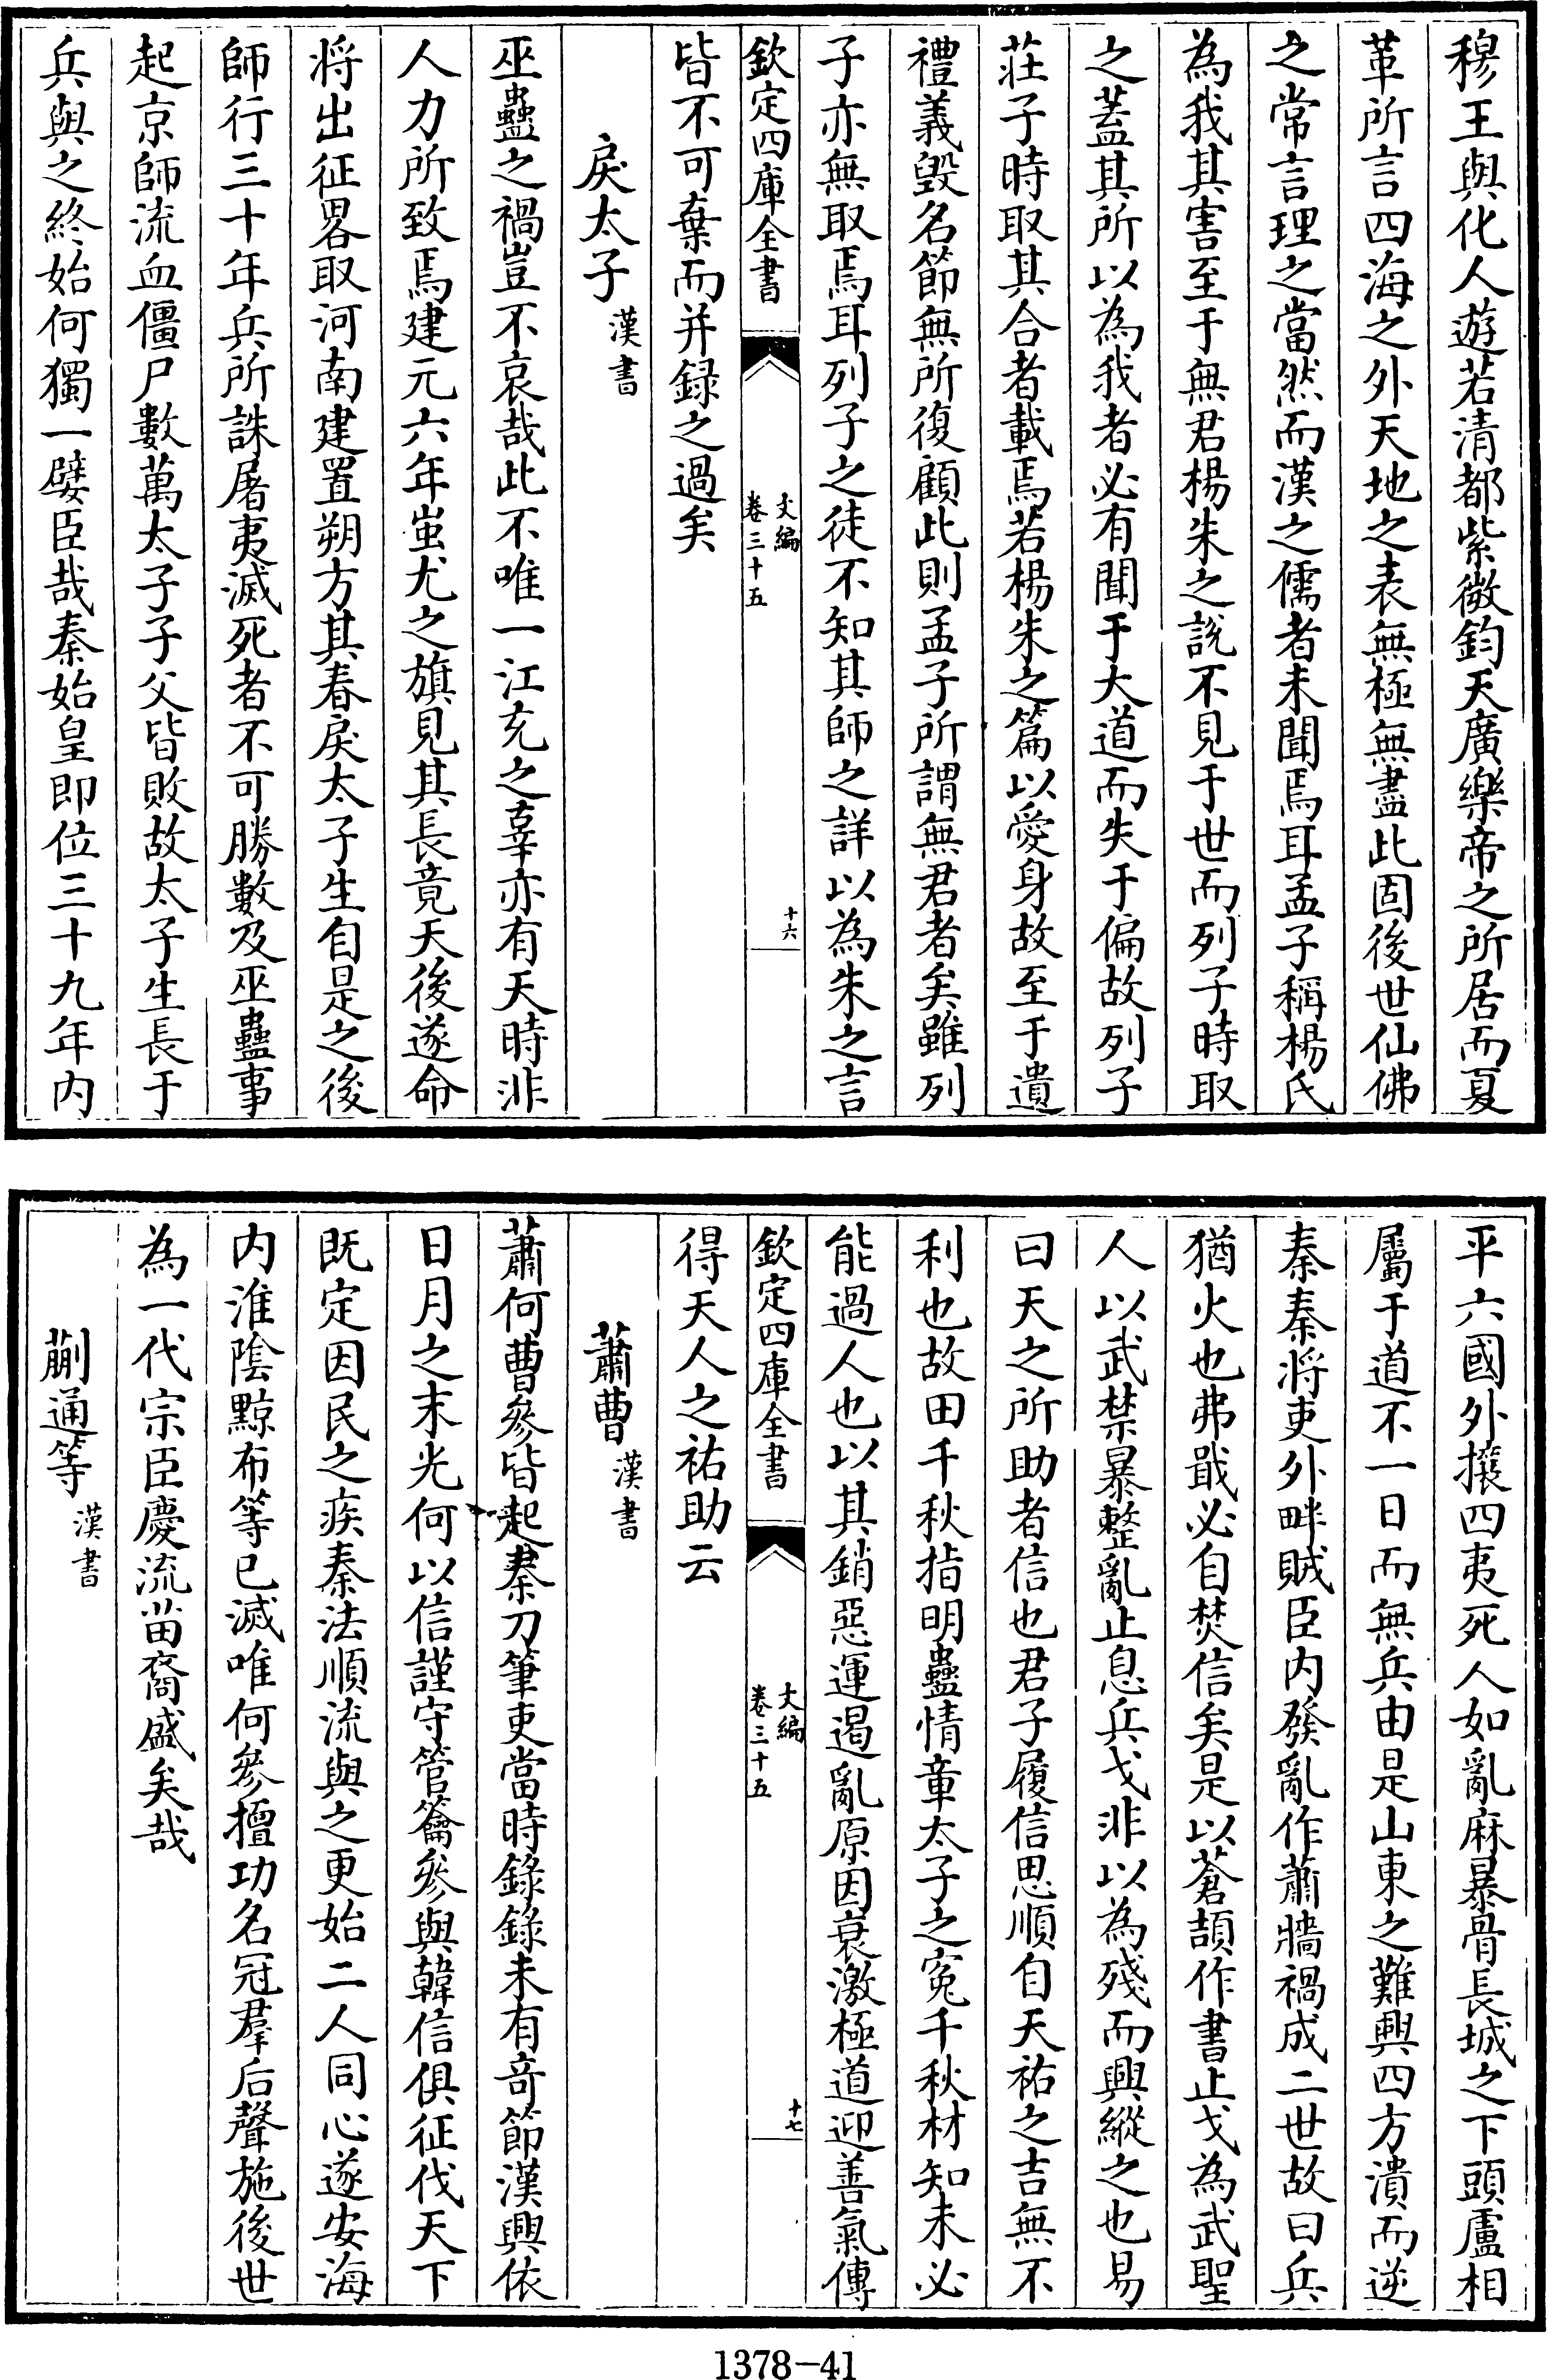 穆王與化人遊若清都紫微鈞天廣樂帝之所居而夏
革所言四海之外天地之表無極無盡此固後世仙佛
之常言理之當然而漢之儒者未聞焉耳孟子稱楊氏
為我其害至于無君楊朱之說不見于世而列子時取
之蓋其所以為我者必有聞于大道而失于偏故列子
莊子時取其合者載焉若楊朱之篇以愛身故至于遺
禮義毀名節無所復顧此則孟子所謂無君者矣雖列
子亦無取焉耳列子之徒不知其師之詳以為朱之言
欽定四庫全書
文編
卷三十五
十六
皆不可棄而并録之過矣
戾太子漢書
巫蠱之禍豈不哀哉此不唯一江充之辜亦有天時非
人力所致焉建元六年蚩尤之旗見其長竟天後遂命
將出征畧取河南建置朔方其春戾太子生自是之後
師行三十年兵所誅屠夷滅死者不可勝數及巫蠱事
起京師流血僵尸數萬太子子父皆敗故太子生長于
兵與之終始何獨一嬖臣哉秦始皇即位三十九年内
平六國外攘四夷死人如亂麻暴骨長城之下頭盧相
屬于道不一日而無兵由是山東之難興四方潰而逆
秦秦將吏外畔賊臣内發亂作蕭牆禍成二世故曰兵
猶火也弗戢必自焚信矣是以蒼頡作書止戈為武聖
人以武禁暴整亂止息兵戈非以為殘而興縱之也易
曰天之所助者信也君子履信思順自天祐之吉無不
利也故田千秋指明蠱情章太子之寃千秋材知未必
能過人也以其銷惡運遏亂原因衰激極道迎善氣傳
欽定四庫全書
文編
卷三十五
十七
得天人之祐助云
蕭曹漢書
蕭何曹參皆起秦刀筆吏當時錄錄未有竒節漢興依
日月之末光何以信謹守管籥參與韓信俱征伐天下
既定因民之疾秦法順流與之更始二人同心遂安海
内淮陰黥布等已滅唯何參擅功名冠羣后聲施後世
為一代宗臣慶流苗裔盛矣哉
蒯通等漢書
1378-41